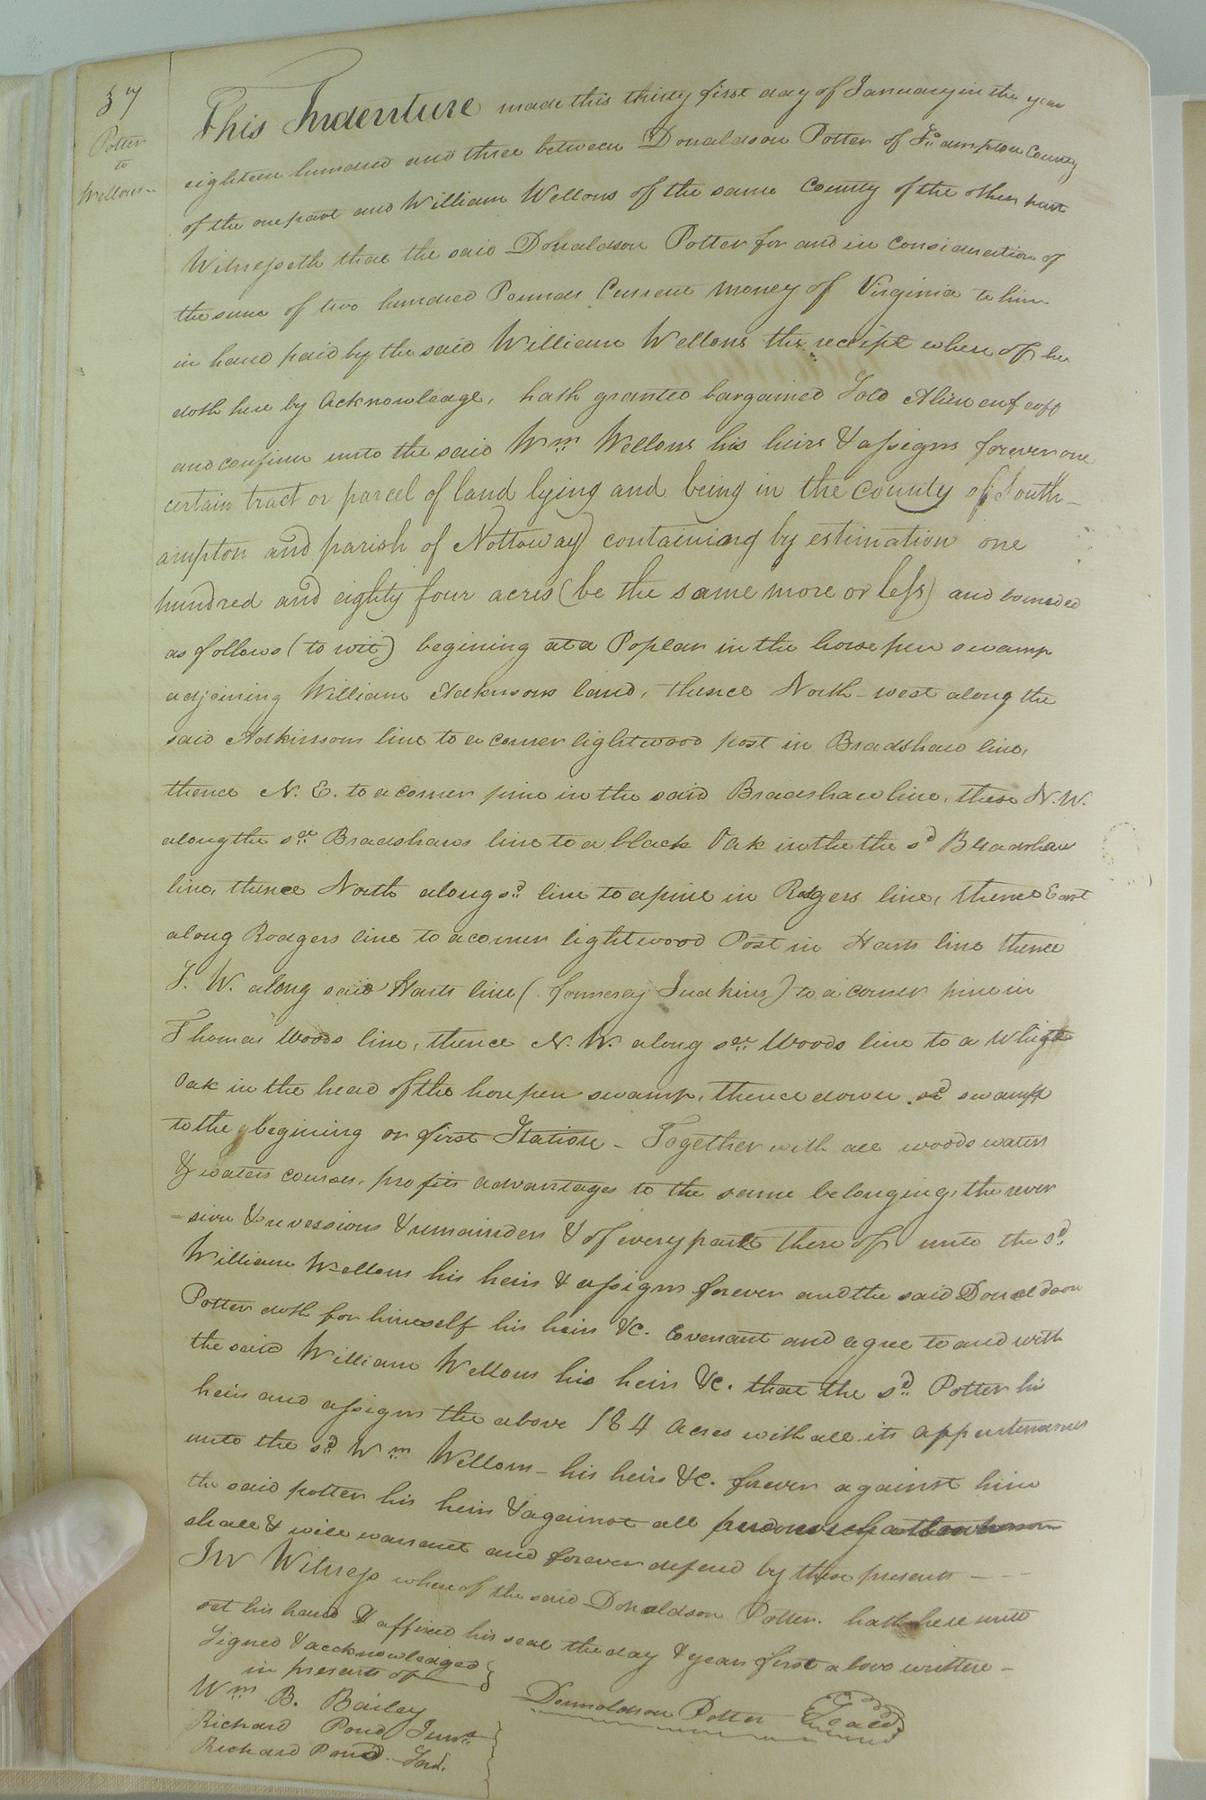 57
Potter
to
Wellons
This Indenture made this thirty first day of January in the year
eighteen hundred and three between Donaldson Potter of So. ampton County
of the one part and William Wellons of the same County of the other part
Witnesseth that the said Donaldson Potter for and in consideration of
the sum of two hundred Pounds Current money of Virginia to him
in hand paid by the said William Wellons the receipt where of he
doth here by Acknowledge, hath granted bargained Sold Alien enfeoff
and confirm unto the said Wm. Wellons his heirs & assigns forever one
certain tract or parcel of land lying and being in the county of South-
ampton and parish of Nottoway containing by estimation one
hundred and eighty four acres (be the same more or less) and bounded
as follows (to wit) begining at a Poplar in the horse pen swamp
adjoining William Adkinsons land, thence North-west along the
said Adkinsons line to a corner lightwood post in Bradshaw line,
thence N. E. to a corner pine in the said Bradshaw line, thence N.W.
along the sd. Bradshaws line to a black Oak in the the sd Bradshaw
line, thence North along sd. line to a pine in Rodgers line, thence East
along Rodgers line to a corner lightwood Post in Harts line thence
S. W. along said Harts line (formerly Judkins) to a corner pine in
Thomas Woods line, thence N. W. along sd. Woods line to a White
Oak in the head of the horsepen swamp, thence down sd swamp
to the begining or first Station - Together with all woods waters
& waters courses, profits advantages to the same belonging, the rever
sion & reversions & remainders & of every part there of unto the sd.
William Wellons his heirs & assigns forever and the said Donaldson
Potter doth for himself his heirs &c. Covenant and agree to and with
the said William Wellons his heirs &c. that the sd. Potter his
heirs and assigns the above 184 Acres with all its appurtenances
unto the sd Wm Wellons - his heirs &c. forever against him
the said potter his heirs & against all persons
shall & will warrant and forever defend by these presents - - -
In Witness whereof the said Donaldson Potter. hath here unto
set his hand & affixed his seal the day & year first above written -
Signed & acknowledged
in presents of
Wm. B. Bailey
Richard Pond Junr.
Richard Pond Snr.
Donnoldson Potter Seal